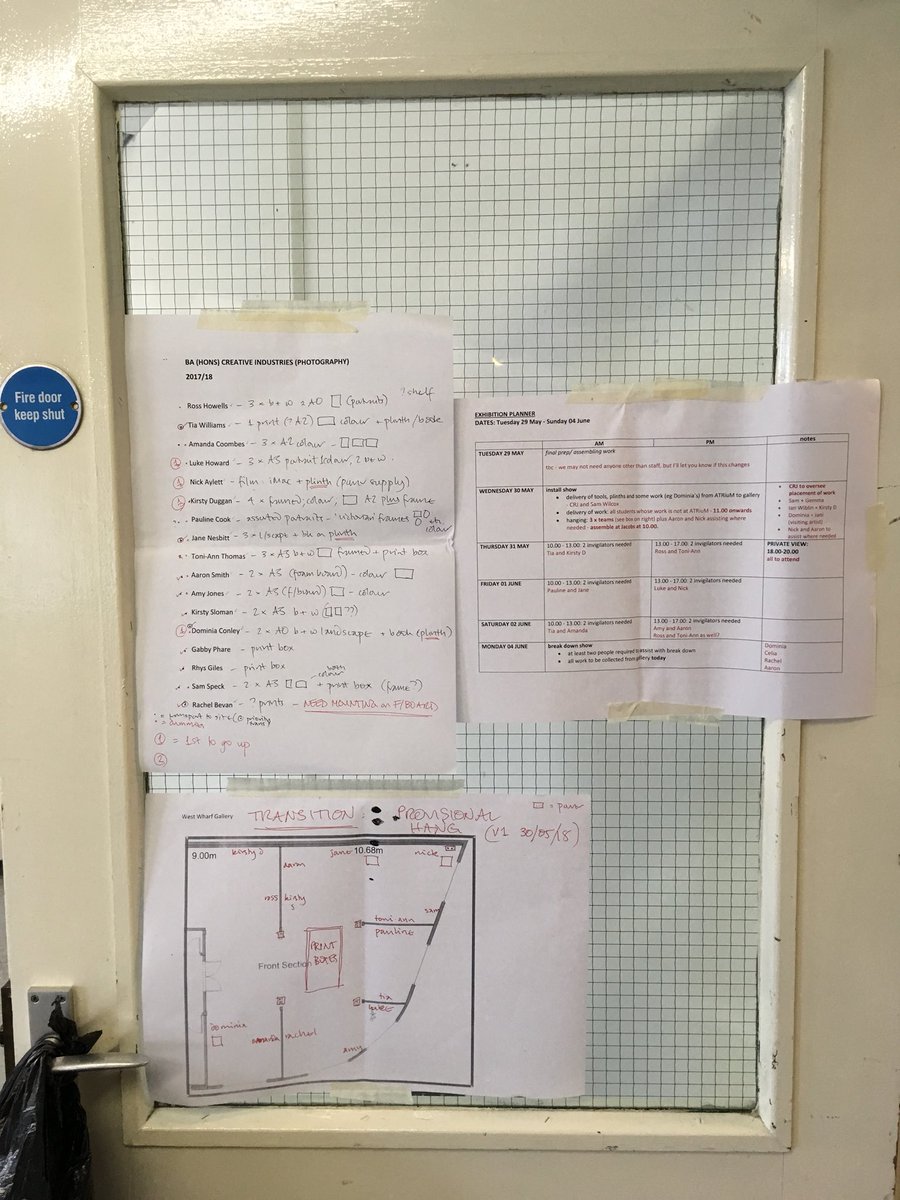 Fire door
keep shut
BA (HONS) CREATIVE INDUSTRIES (PHOTOGRAPHY)
2017/18
Ross Howells - 3 x b+w 2 A0 (portraits) ? shelf
Tia Williams - 1 print (? A2) colour + plinth/book
Amanda Coombes - 3 x A2 colour -
1 Luke Howard - 3 x A3 portrait 1 colour, 2 b+w.
1 Nick Aylett - film: iMac + plinth (power supply)
1 Kirsty Duggan - 4 x framed, colour, A2 plus frame
Pauline Cook - assorted portraits - 'victorian' frames colour
Jane Nesbitt - 3 x L/scape + on plinth
Toni-Ann Thomas - 3 x A3 b+w framed + print box
Aaron Smith - 2 x A3 (foam board) - colour
Amy Jones - 2 x A3 (f/board) - colour
Kirsty Sloman - 2 x A3 b+w (??)
1 Dominia Conley - 2 x A0 b+w landscape + book (plinth)
Gabby Phare - print box
Rhys Giles - print box
Sam Speck - 2 x A3 + print box (frame?)
Rachel Bevan - ? prints - NEED MOUNTING on F/BOARD
1 = 1st to go up
2
EXHIBITION PLANNER
DATES: Tuesday 29 May - Sunday 04 June
AM PM notes
TUESDAY 29 MAY final prep/ assembling work
tbc - we may not need anyone other than staff, but I'll let you know if this changes
WEDNESDAY 30 MAY install show
• delivery of tools, plinths and some work (eg Dominia's) from ATRiuM to gallery
- CRJ and Sam Wilcox
• delivery of work: all students whose work is not at ATRiuM - 11.00 onwards
• hanging: 3 x teams (see bix on right) plus Aaron and Nick assisting where
needed - assemble at Jacobs at 10.00.
• CRJ to oversee
placement of work
• Sam + Gemma
• Ian Wiblin + Kirsty D
• Dominia + Jani
(visiting artist)
• Nick and Aaron to
assist where needed
THURSDAY 31 MAY 10.00 - 13.00: 2 invigilators needed 13.00 - 17.00: 2 invigilators needed PRIVATE VIEW:
Tia and Kirsty D Ross and Toni-Ann 18.00-20.00
all to attend
FRIDAY 01 JUNE 10.00 - 13.00: 2 invigilators needed 13.00 - 17.00: 2 invigilators needed
Pauline and Jane Luke and Nick
SATURDAY 02 JUNE 10.00 - 13.00: 2 invigilators needed 13.00 - 17.00: 2 invigilators needed
Tia and Amanda Amy and Aaron
Ross and Toni-Ann as well?
MONDAY 04 JUNE break down show
• at least two people required to assist with break down
• all work to be collected from gallery today
Dominia
Celia
Rachel
Aaron
West Wharf Gallery TRANSITION : PROVISIONAL
HANG
= power
(V1 30/05/18)
9.00m kirsty D jane 10.68m nick
aaron
ross kirsty
S
sam
toni ann
pauline
PRINT
BOXES
Front Section
tia
LUKE
Dominia
amanda rachel
amy